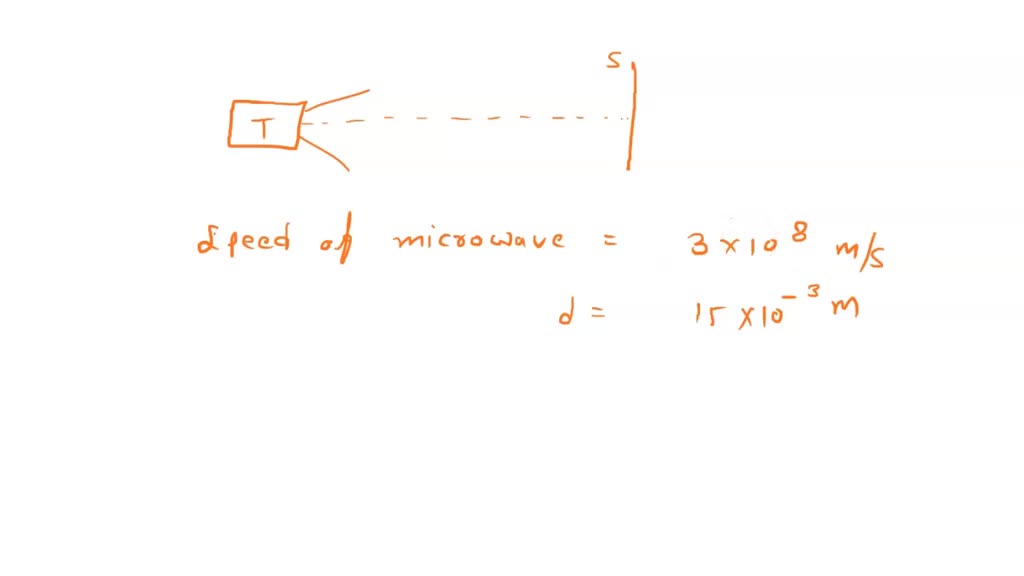 S
T
Speed of microwave = 3 × 10⁸ m/s
d = 15 × 10⁻³ m